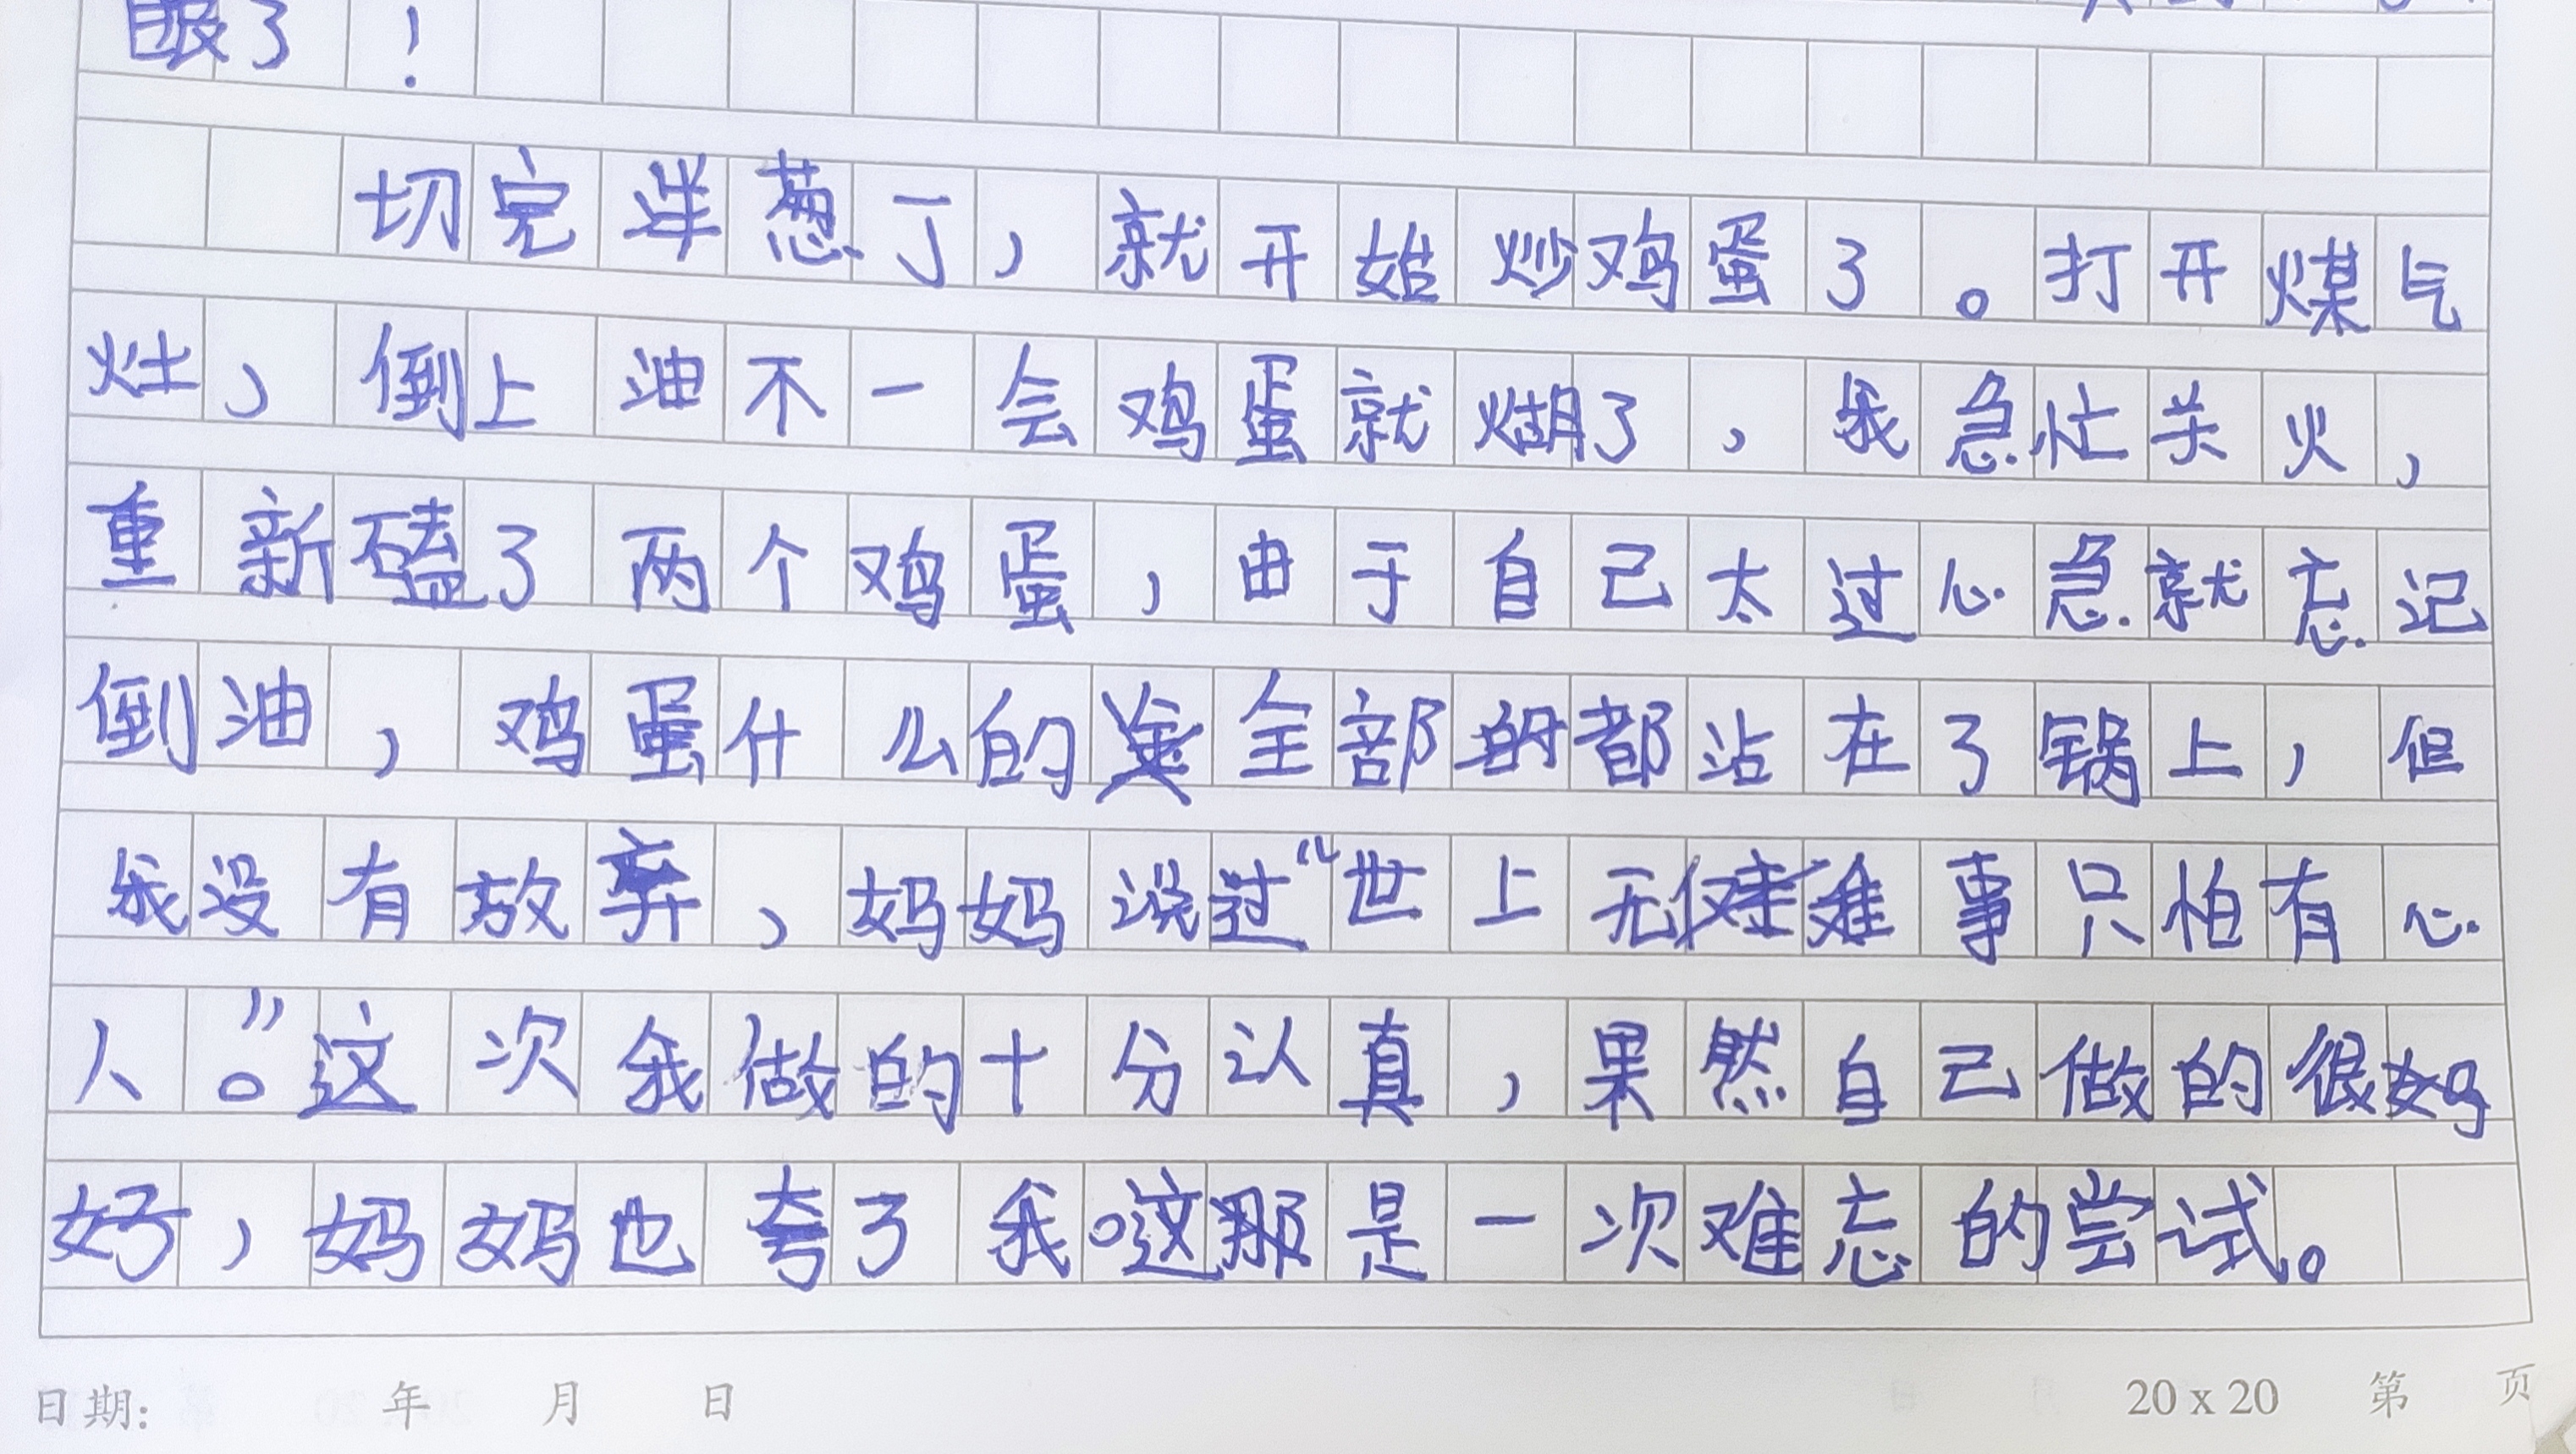 眼了！
切完洋葱丁，就开始炒鸡蛋了。打开煤气
灶，倒上油不一会鸡蛋就煳了，我急忙关火，
重新磕了两个鸡蛋，由于自己太过心急就忘记
倒油，鸡蛋什么的全部都站在了锅上，但
我没有放弃，妈妈说过“世上无难事只怕有心
人。”这次我做的十分认真，果然自己做的很好
好，妈妈也夸了我。这那是一次难忘的尝试。
日期： 年 月 日 20 x 20 第 页